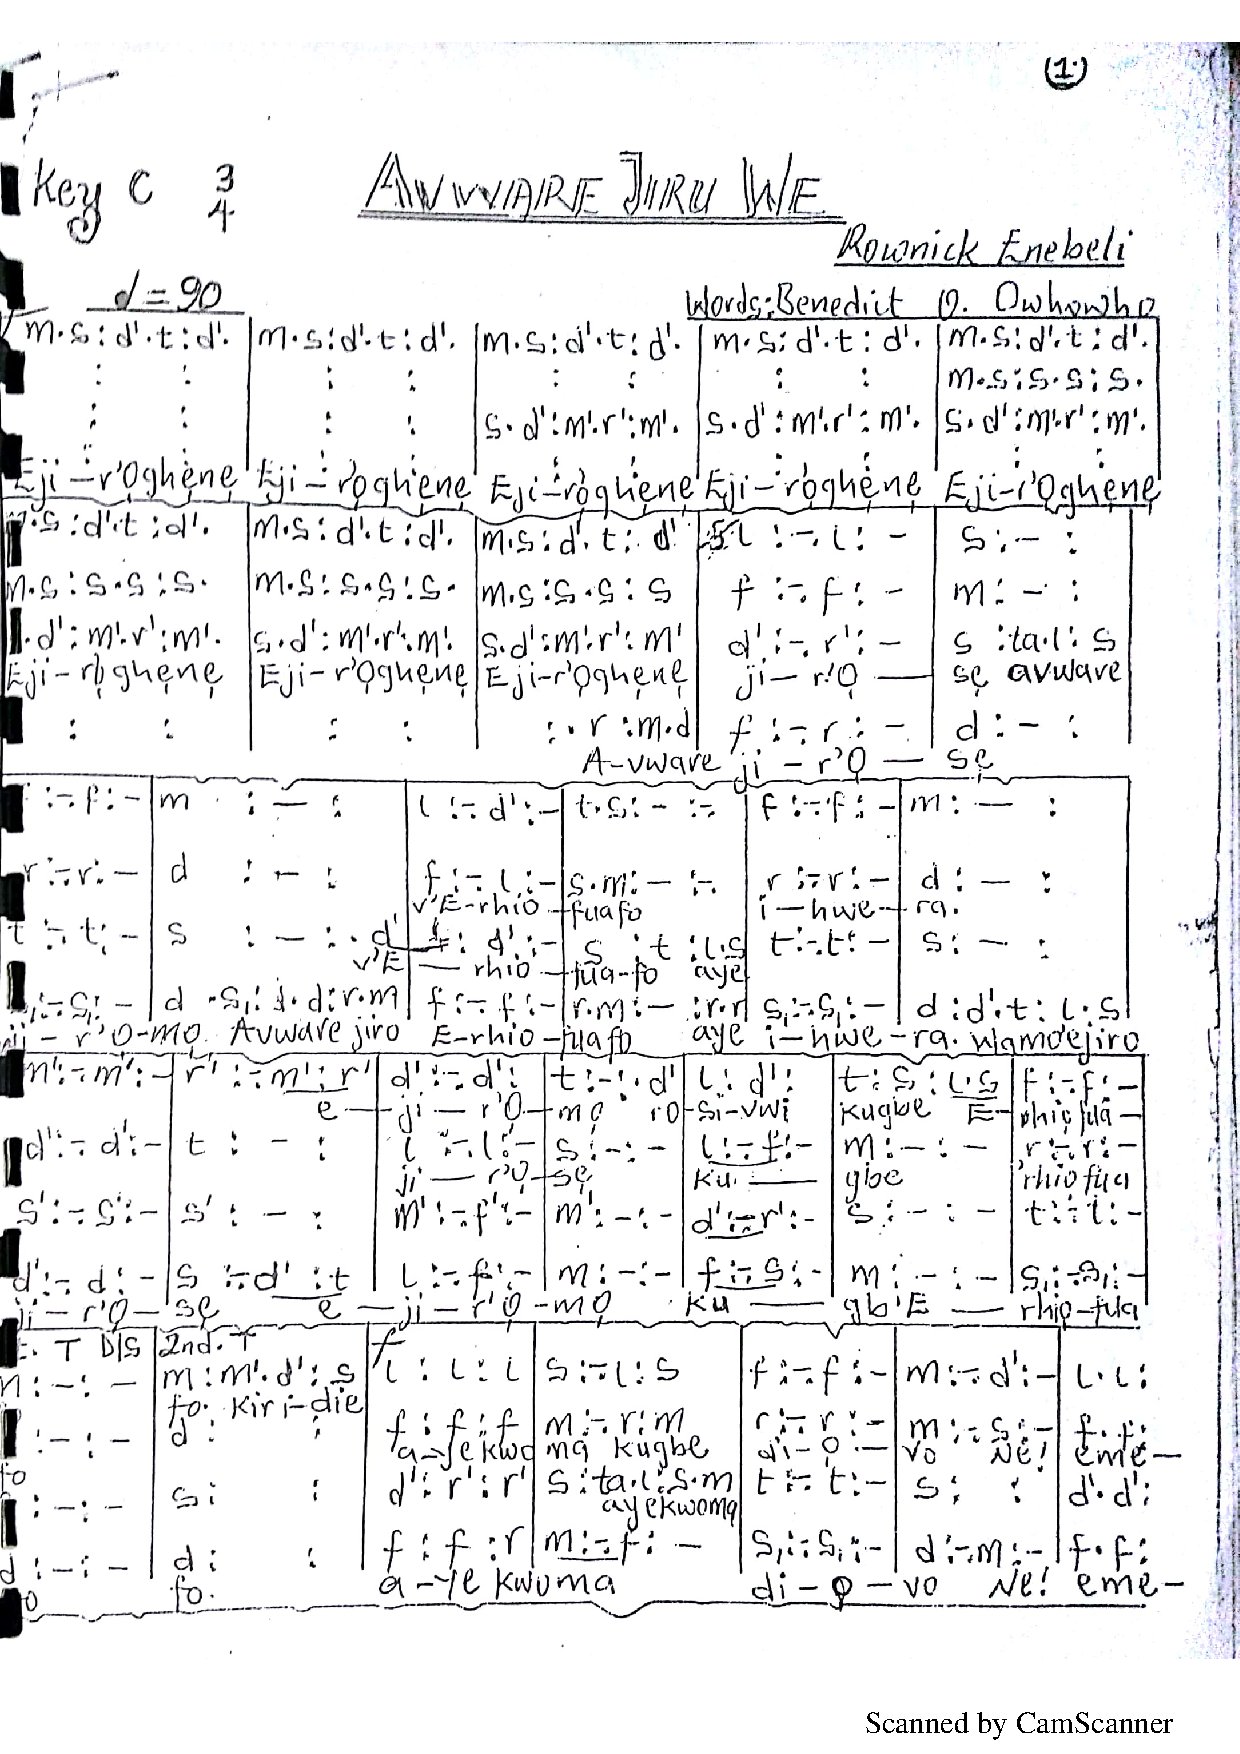 (1.)
Key C 3/4 AVWARE JIRU WE
Rownick Enebeli
d = 90 Words: Benedict O. Owhowho
m.s:d'.t:d'. | m.s:d'.t:d'. | m.s:d'.t:d'. | m.s:d'.t:d'. | m.s:d'.t:d'.
: : | : : | : : | : : | m.s:s.s:s.
: : | : : | s.d':m'.r':m'. | s.d':m'.r':m'. | s.d':m'.r':m'.
: : | : : | : : | : : | : :
Eji-r'Oghẹnẹ Eji-r'oghẹnẹ Eji-r'oghẹnẹ Eji-r'oghẹnẹ Eji-r'Oghẹnẹ
m.s:d'.t:d'. | m.s:d'.t:d'. | m.s:d'.t:d' | l:-.l:- | s:-:
m.s:s.s:s. | m.s:s.s:s. | m.s:s.s:s | f:-.f:- | m:-:
.d':m'.r':m'. | s.d':m'.r':m'. | s.d':m'.r':m' | d':-.r':- | s:ta.l:s
Eji-r'oghẹnẹ Eji-r'Ọghẹnẹ Eji-r'Ọghẹnẹ ji-r'Ọ — sẹ avware
: : | : : | :.r:m.d | f:-.r:- | d:-:
A-vware ji-r'Ọ — sẹ
:-f:- | m:-: | l:-.d':- | t.s:-:- | f:-.f:- | m:-:
r:-r:- | d:-: | f:-.l:- | s.m:-:- | r:-.r:- | d:-:
v'E-rhio-fuafo i-hwe-ra.
t:-.t:- | s:-:.d' | : d':- | s:t:l.s | t:-.t:- | s:-:
v'E — rhio-fua-fo aye
:-.s,:- | d.s,:d.d:r.m | f:-.f:- | r.m:-:r.r | s,:-.s,:- | d:d'.t:l.s
ji-r'O-mọ Avware jiro E-rhio-fuafo aye i-hwe-ra. wamdejiro
m':-m':- | r':-m':r' | d':-.d': | t:-:.d' | l:d': | t:s:l.s | f:-f:-
e — ji-r'Ọ-mọ ro-si-vwi kugbe E-rhio fua-
d':-d':- | t:-: | l:-.l:- | s:-:- | l:-f:- | m:-:- | r:-.r:-
ji — r'Ọ-sẹ ku — gbe rhiofua
s':-s':- | s':-: | m':-f':- | m':-:- | d':-r':- | s:-:- | t:-t:-
d':-d:- | s:-d':t | l:-f:- | m:-:- | f:-s:- | m:-:- | s,:-s,:-
ji-r'Ọ-sẹ e — ji-r'Ọ-mọ ku — gb'E — rhio-fua
T D/S | 2nd.T f
:-:- | m:m'.d':s | l:l:l | s:-l:s | f:-f:- | m:-d':- | l.l:
fo. kiri-die
:-:- | d: : | f:f:f | m:-r:m | r:-r:- | m:-s:- | f.f:
fo a-ye kwo ma kugbe di-ọ-vo Ne! eme-
:-:- | s: : | d':r':r' | s:ta.l:s.m | t:-t:- | s: : | d'.d':
ayekwoma
d:-:- | d: : | f:f:r | m:-f:- | s,:-s,:- | d:-m:- | f.f:
fo. a-ye kwoma di-ọ-vo Ne! eme-
Scanned by CamScanner